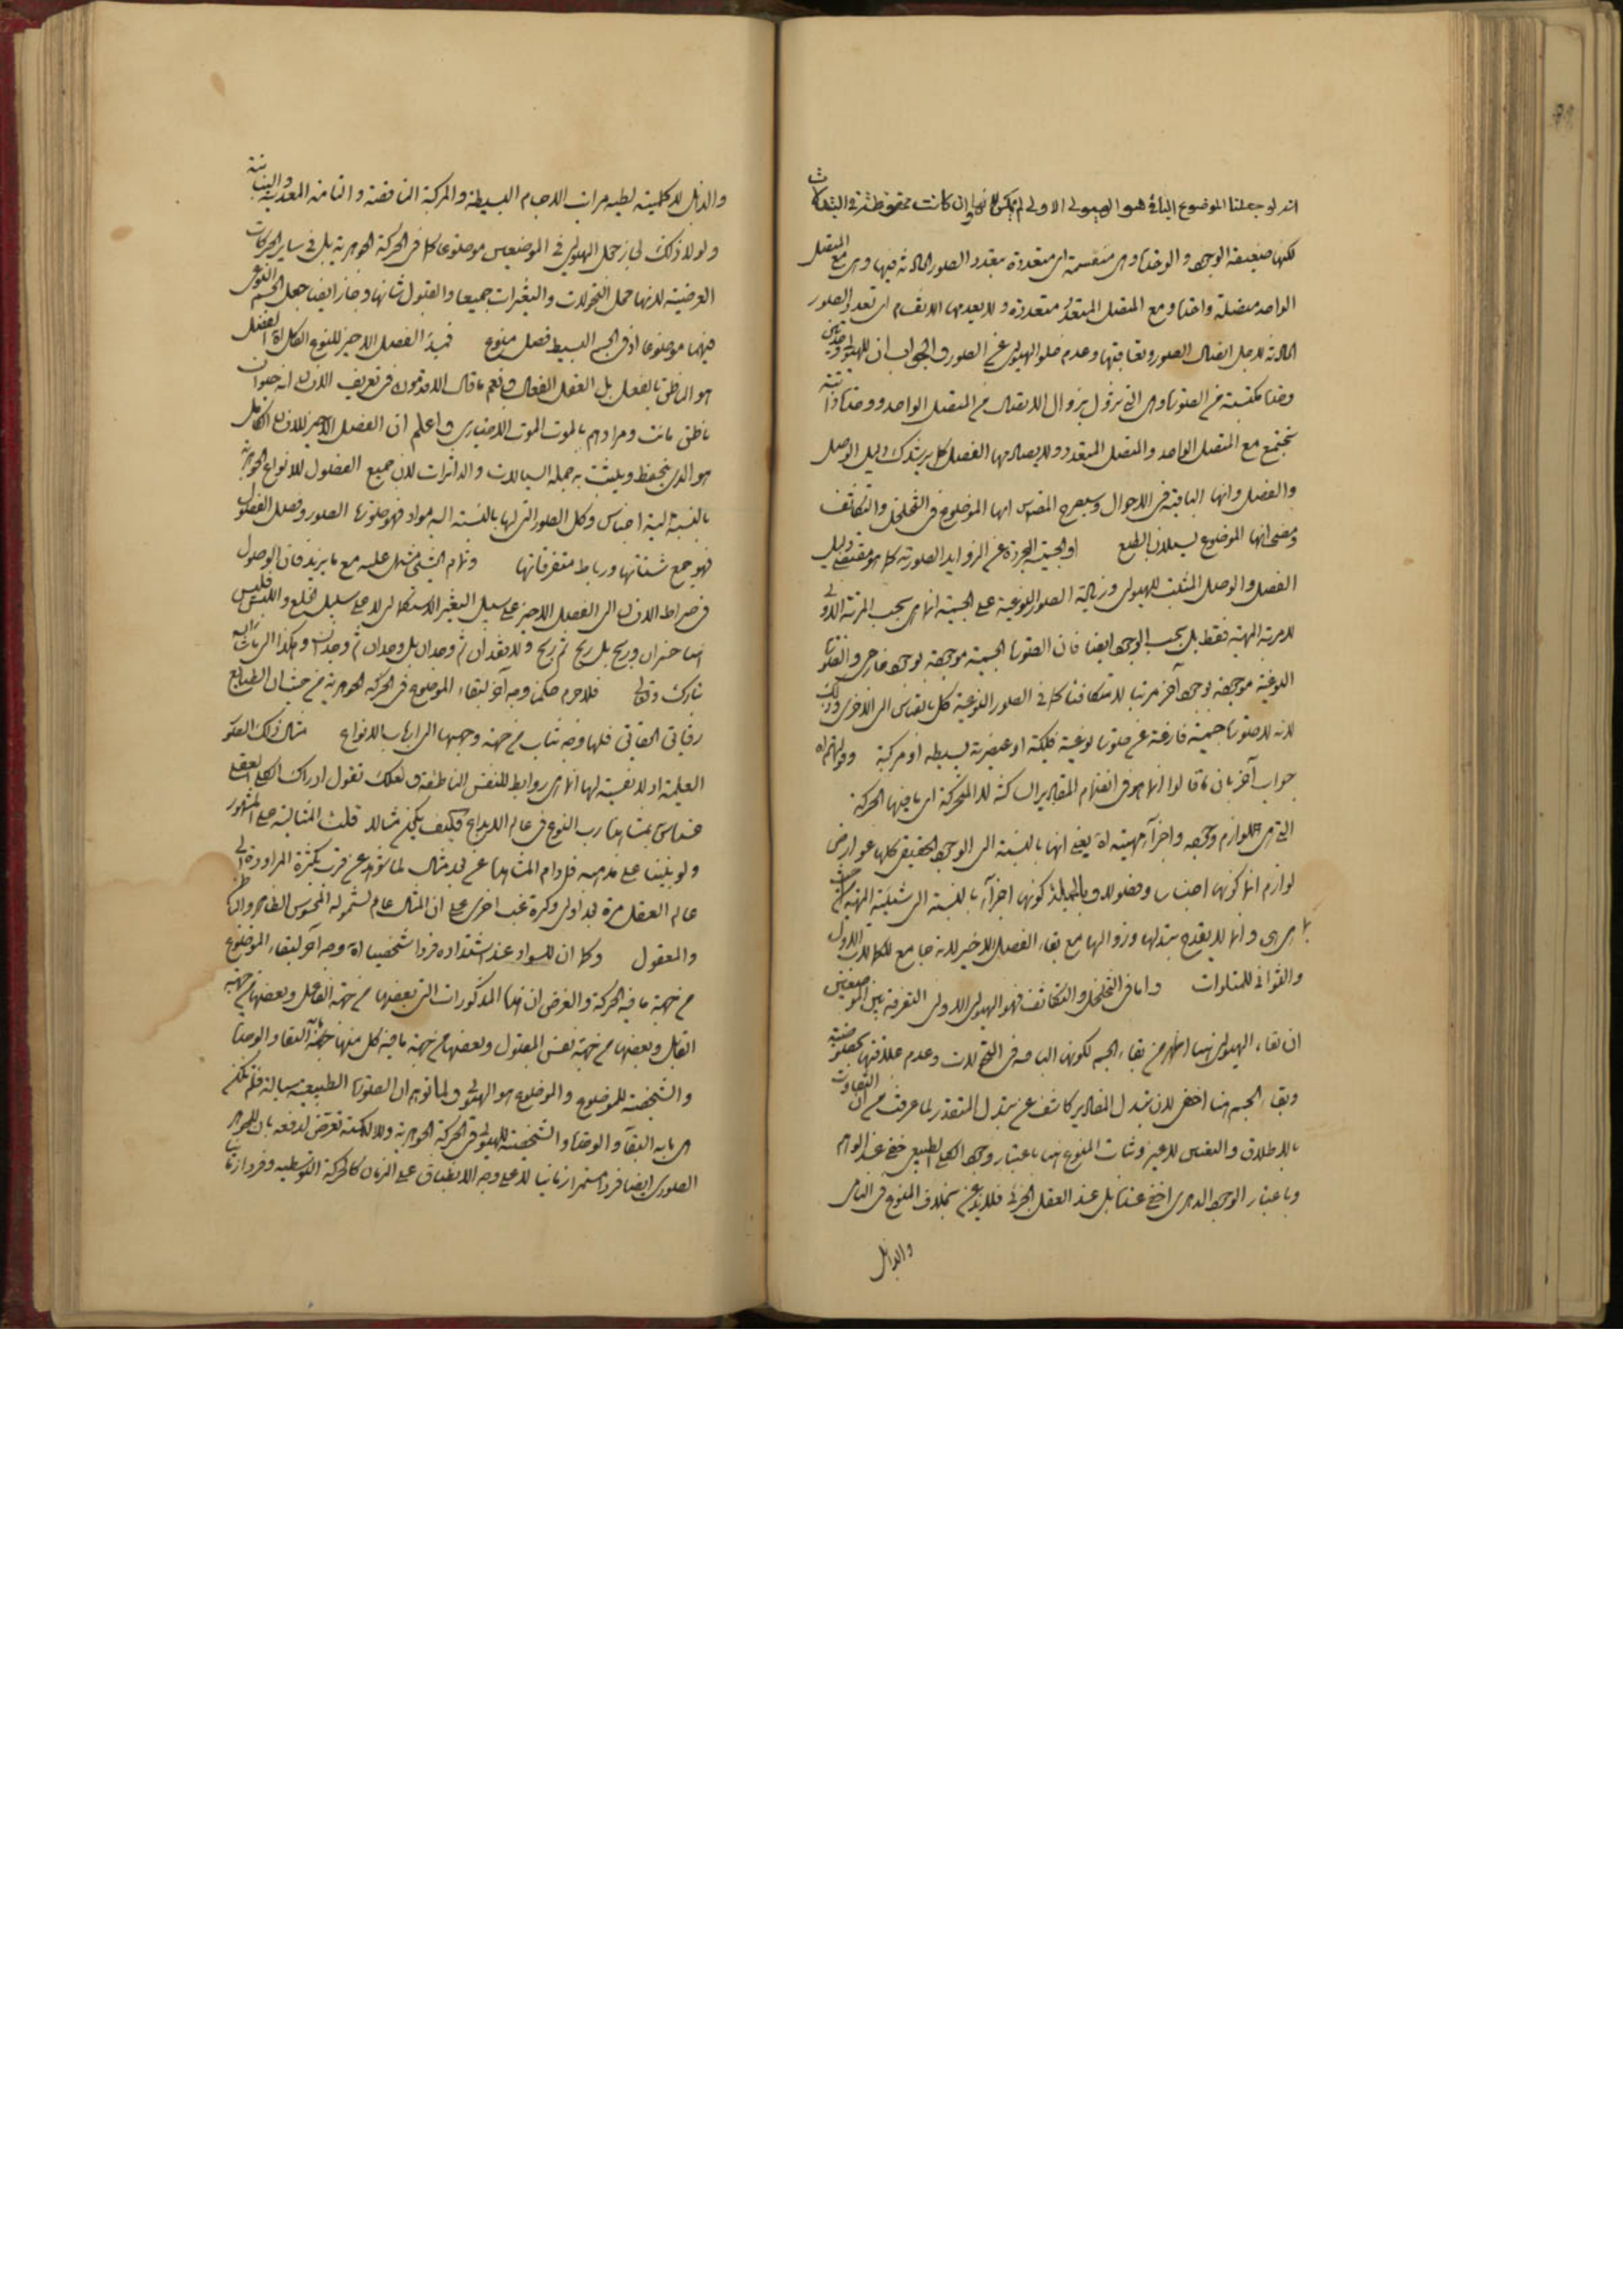 انه لو جعلنا الموضوع الباقى هو الهيولى الاولى لم يمكن لانها وان كانت محفوظة فى التبدلات
لكنها ضعيفة الوجود والوحدة وهى منقسمة اى متعددة بتعدد الصور الحادثة فيها وهى مع المتصل
الواحد متصلة واحدة ومع المتصل المتعدد متعددة ولا يعدمها الانقسام اى تعدد الصور
الحادثة لاجل اتصال الصور وتعاقبها وعدم خلو الهيولى عن الصور والجواب ان للهيولى وحدتين
وحدة مكتسبة من الصورة وهى التى تزول بزوال الاتصال من المتصل الواحد ووحدة ذاتية
تجتمع مع المتصل الواحد والمتصل المتعدد ولا يصادمها الفصل كما يرشدك دليل الوصل
والفصل وانها الباقية فى الاحوال وسيصرح المصنف انها الموضوع فى التخلخل والتكاثف
ومضى انها الموضوع لسيلان الطبع او الجسمية المجردة عن الزوايد الصورية كما هو مقتضى دليل
الفصل والوصل المثبت للهيولى وزيادة الصور النوعية على الجسمية انها هى بحسب المرتبة الاولى
لا مرتبة المهية فقط بل بحسب الوجود ايضا فان الصورة الجسمية موجودة بوجود خارجى والصورة
النوعية موجودة بوجود آخر مرتبا لا متكافئا كما فى الصور النوعية كل بالقياس الى الاخرى وذلك
لانه لا صورة جسمية فارغة عن صورة نوعية فلكية او عنصرية بسيطة او مركبة وقولهم اه
جواب آخر بان ما قالوا انما هو فى انضمام المقادير الساكنة لا المتحركة اى ما فيها الحركة
التى هى لوازم وجوده واجزاء مهيته اه يعنى انها بالنسبة الى الوجود الحقيقى كلها عوارض
لوازم انما كونها اجناسا وفصولا وبالجملة كونها اجزاء بالنسبة الى شيئية المهية من حيث
هى هى وانما لا يقدح تبدلها وزوالها مع بقاء الفصل الاخير لانه جامع للكمالات الاول
والثوانى للمتلوات واما فى التخلخل والتكاثف فهو الهيولى الاولى التفرقة بين الموضعين
ان بقاء الهيولى هنا اظهر من بقاء الجسم لكونها الباقية فى التحولات وعدم علاقتها بخصوصية
وبقاء الجسم هنا اخفى لان تبدل المقادير كاشف عن تبدل المتقدر لما عرفت من ان التفاوت
بالاطلاق والتعين لا غير وثبات المنوع هنا باعتبار وجود الكلى الطبيعى خفى عند الوهم
وباعتبار الوجود الدهرى اخفى عنده بل عند العقل الجزئى فلا يذعن بخلاف المنوع فى النامى
والذابل
والذابل لا كلمية لطيه مراتب الاجسام البسيطة والمركبة الناقصة والتامة المعدنية والنباتية
ولولا ذلك لجاز جعل الهيولى فى الموضعين موضوعا كما فى الحركة الجوهرية بل فى ساير الحركات
العرضية لانها محل التحولات والتغيرات جميعا والقبول شانها وجاز ايضا جعل الجسم النوعى
فيهما موضوعا اذ فى الجسم البسيط فصل منوع فمبدء الفصل الاخير للنوع الكامل اه الفصل
هو الناطق بالفعل بل العقل الفعال ونعم ما قال الاقدمون فى تعريف الانسان انه حيوان
ناطق مائت ومرادهم بالموت الموت الاختيارى واعلم ان الفصل الاخير للانسان الكامل
هو الذى ينحفظ ويثبت به جملة السيالات والداثرات لان جميع الفصول للانواع الجوهرية
بالنسبة اليه اجناس وكل الصور التى لها بالنسبة اليه مواد فهو صورة الصور وفصل الفصول
فهو جمع شتاتها ورباط متفرقاتها وتمام الشىء مشتمل عليه مع ما يزيد فان الوصول
فى صراط الانسان الى الفصل الاخير على سبيل التغير الاستكمالى لا على سبيل الخلع واللبس فليس
هنا خسران وربح بل ربح ثم ربح ولا فقدان ثم وجدان بل وجدان ثم وجدان وهكذا الى ما شاء الله
تبارك وتعالى فلاجرم حكمنا وجه آخر لبقاء الموضوع فى الحركة الجوهرية من حيث ان الطبايع
رقايق الحقايق فلها وجه ثبات من جهة وجهها الى ارباب الانواع مثال ذلك الصور
العلمية اذ لا نفسية لها انما هى روابط للنفس الناطقة ولعلك تقول ادراك الكلى العقلى
عنده بمشاهدة رب النوع فى عالم الابداع فكيف يكون مثالا قلت المثالية على المشهور
ولو بنينا على مذهبه فدوام المشاهدة عن بعد مثال لما نشاهد عن قرب بكثرة المراودة الى
عالم العقل مرة بعد اولى وكرة غب اخرى على ان المثال عام لشموله المحسوس الظاهر والباطن
والمعقول وكما ان للسواد عند اشتداده فردا شخصيا اه وجه آخر لبقاء الموضوع
من جهة ما فيه الحركة والغرض ان هذه المذكورات التى بعضها من جهة الفاعل وبعضها من جهة
القابل وبعضها من جهة نفس المقبول وبعضها من جهة ما فيه كل منها جهة البقاء والوحدة
والشخصية للموضوع والموضوع هو الهيولى ولما توهم ان الصورة الطبيعية سيالة فلم تكن
هى ما به البقاء والوحدة والشخصية للهيولى فى الحركة الجوهرية تعرض لدفعه بان للجوهر
الصورى ايضا فردا مستمرا زمانيا لا على وجه الانطباق على الزمان كالحركة التوسطية وفردا زمانيا